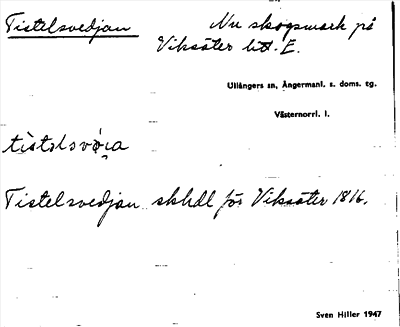 Tistelsvedjan
Nu skogsmark på
Viksäter litt. E.
Ullångers sn, Ångermanl. s. doms. tg.
Västernorrl. l.
Tistelsvedjan skhdl för Viksäter 1816.
Sven Hiller 1947